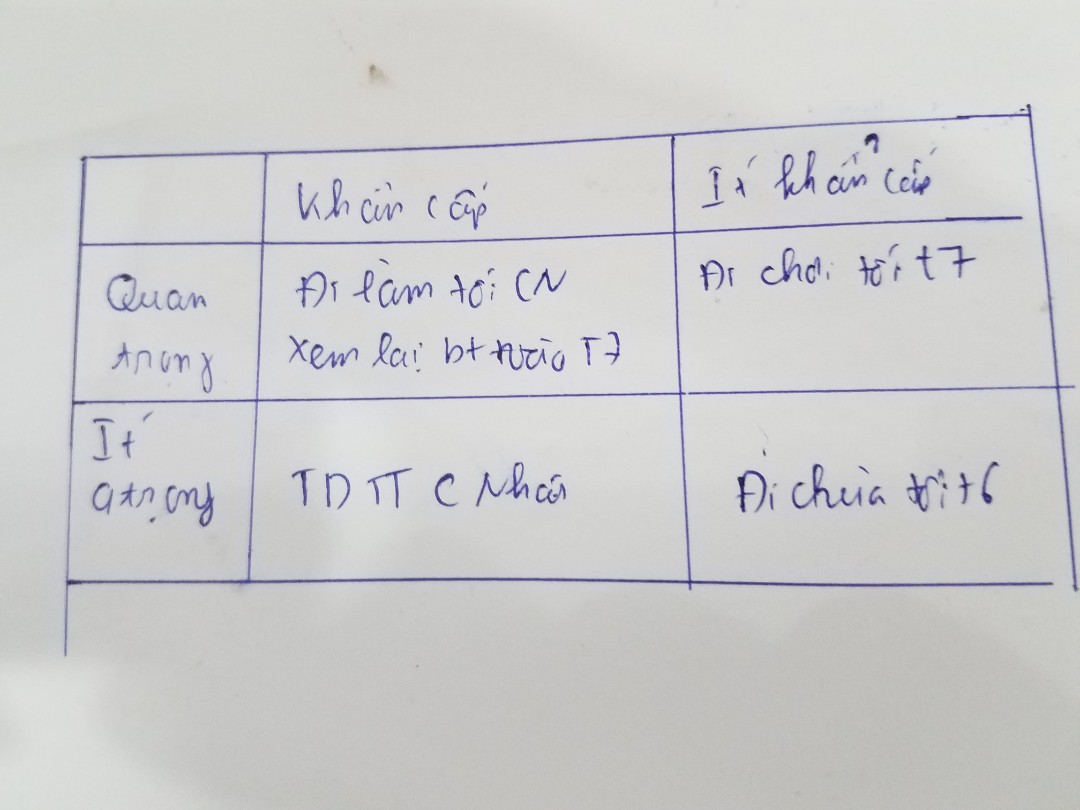 Khẩn cấp
Ít khẩn cấp
Quan
trọng
Đi làm tối CN
Xem lại bt trước T7
Đi chơi tối t7
Ít
qtrọng
TDTT C Nhân
Đi chùa tối t6